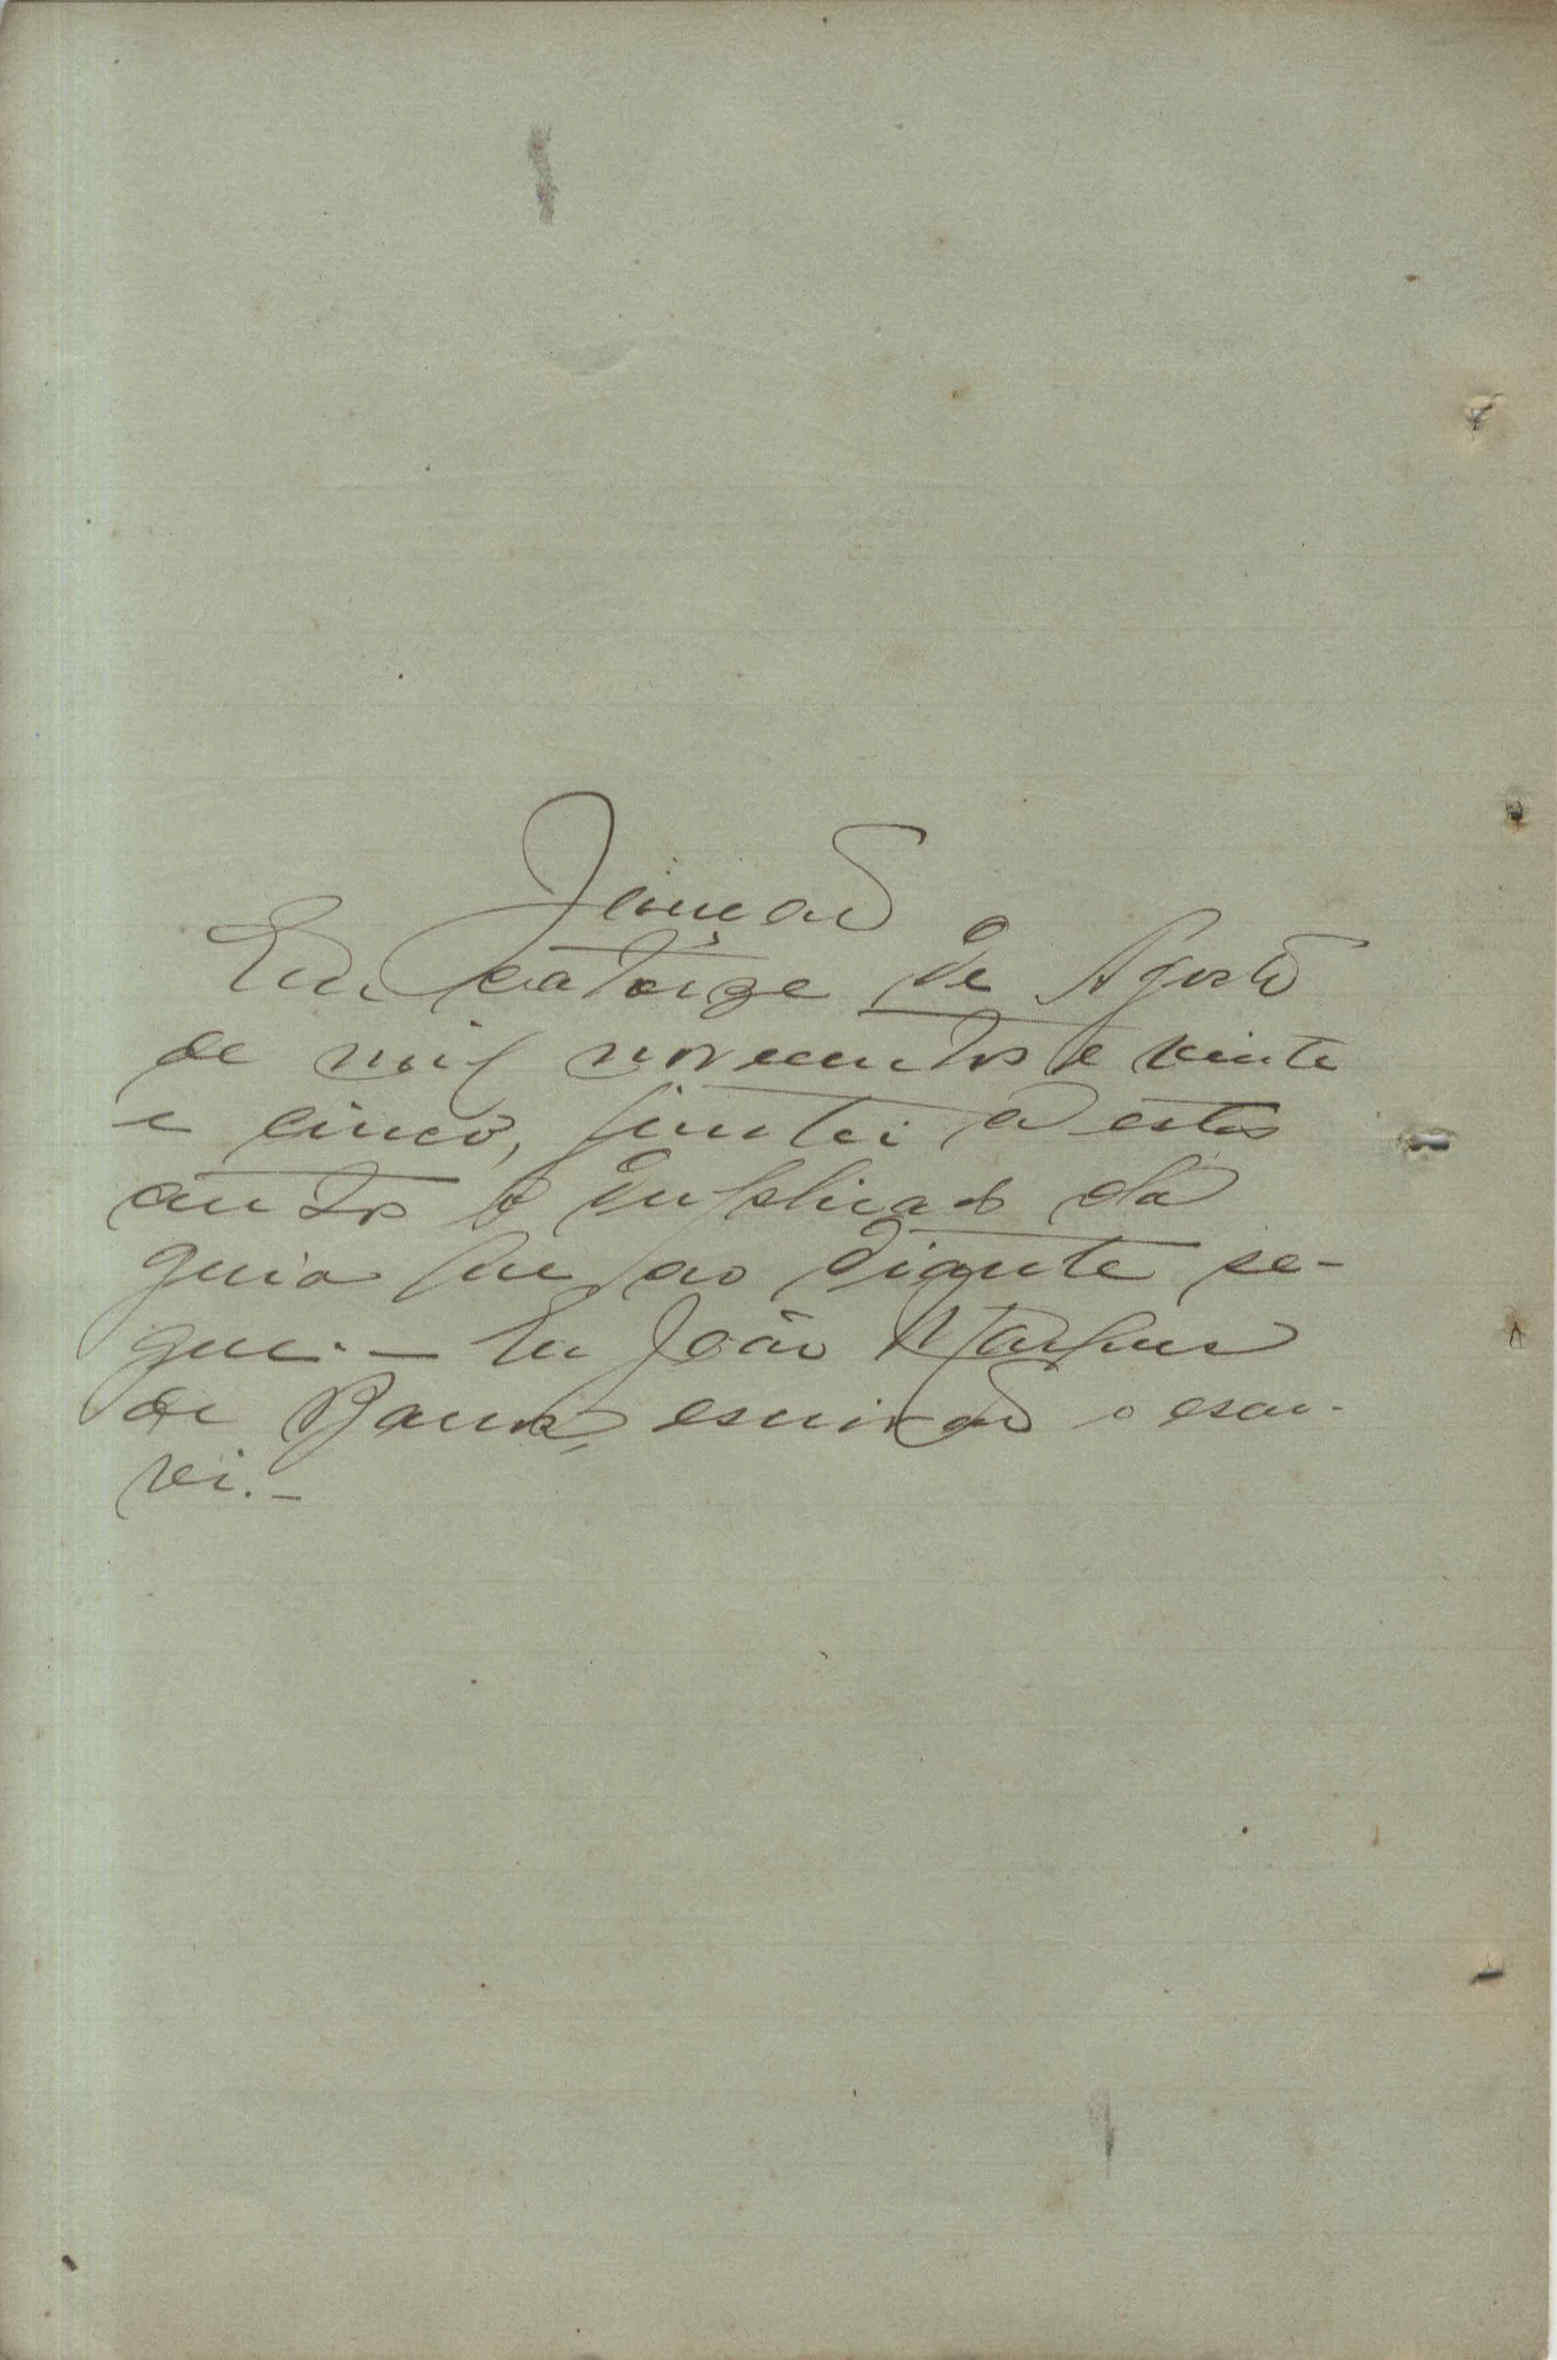 Junção
Em catorze de Agosto
de mil novecentos e vinte
e cinco, juntei a estes
autos o duplicado da
guia que ao diante se-
gue. — Eu João Marques
de Barros, escrivão o escre-
vi. –